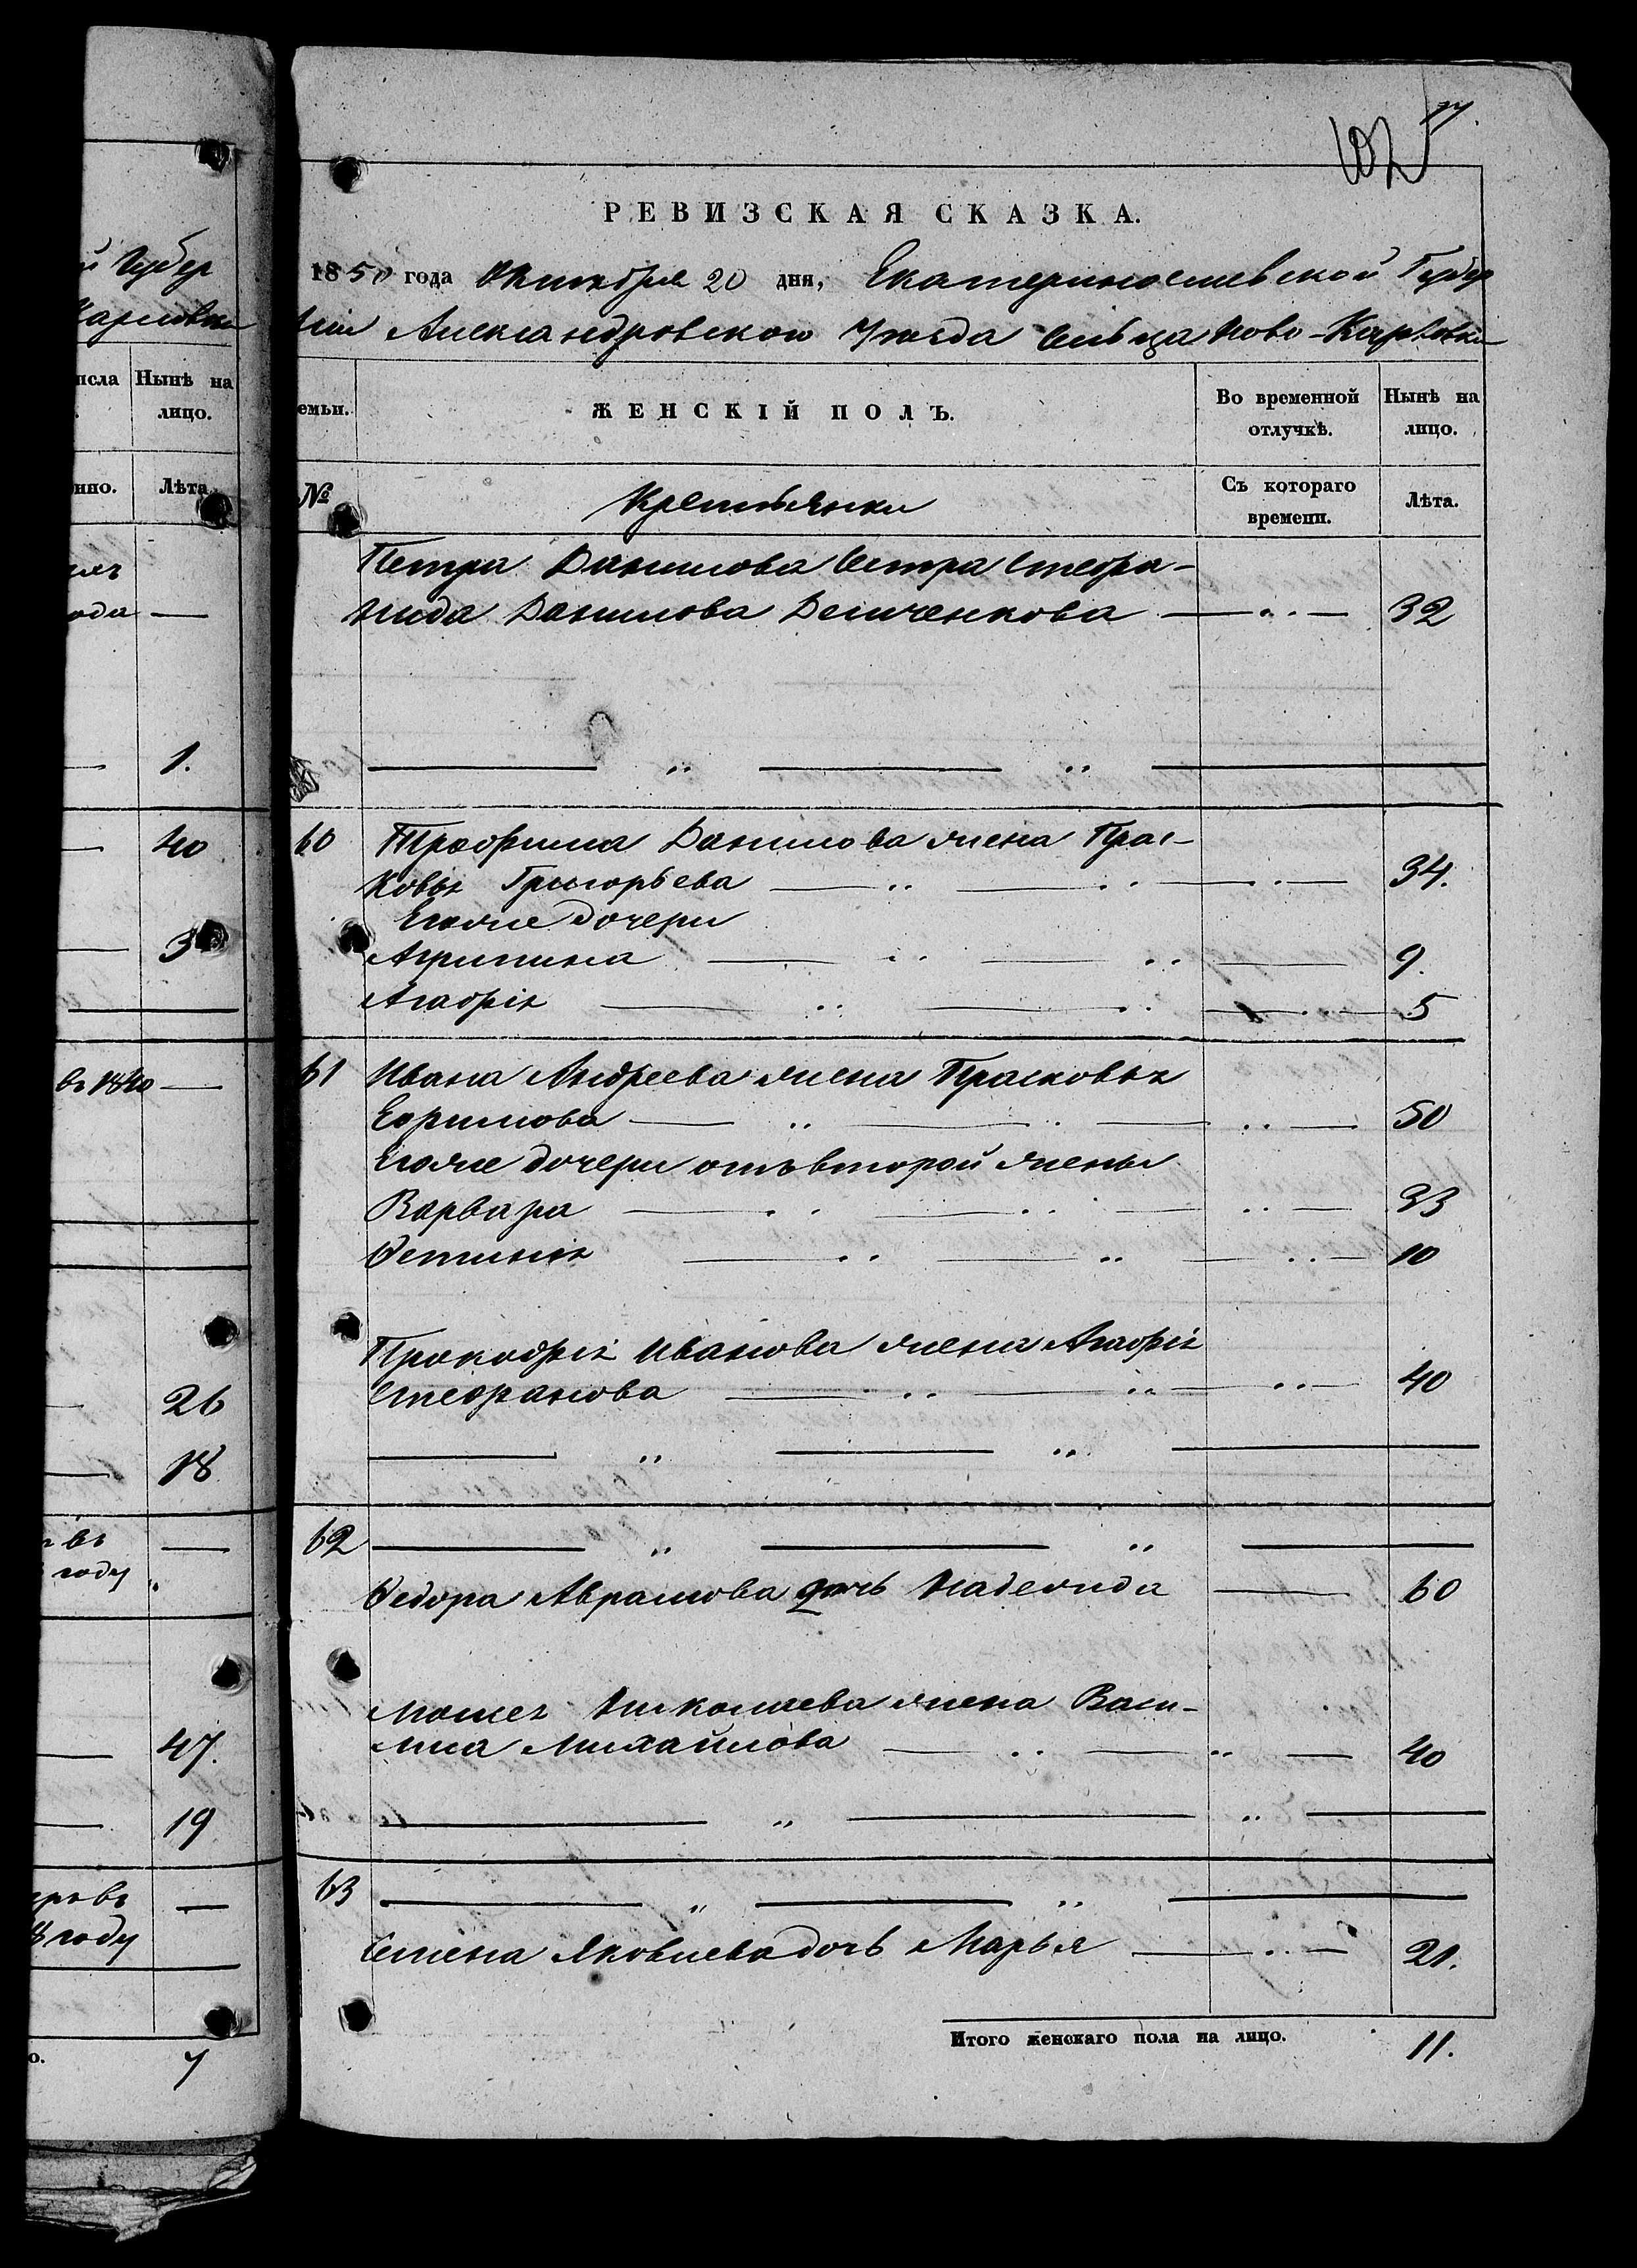 й Губер
Карловки
исла
Нынѣ на
лицо.
нно.
Лѣта
ода —
— 1.
— 40
— 3
въ 1840 —
26
— 18
въ —
году
— 47.
— 19
въ —
году
о. 7
17.
102
РЕВИЗСКАЯ СКАЗКА.
1850 года Октября 20 дня, Екатеринославской Губер
нии Александровского Уезда Сельца Ново-Карловки
емьи.
ЖЕНСКІЙ ПОЛЪ.
Во временной
отлучкѣ.
Нынѣ на
лицо.
№
Крестьянки
Съ котораго
времени.
Лѣта.
Петра Данилова Сестра Стефа-
нида Данилова Демченкова — „ — 32
— „ — „ —
60 Трофима Данилова жена Прас-
ковья Григорьева — „ — „ — „ — 34.
Егоже дочери
Агрипина — „ — „ — 9.
Агафія — „ — „ — „ — 5
61 Ивана Андреева жена Прасковья
Ефимова — „ — „ — „ — 50
Егоже дочери отъ второй жены
Варвара — „ — „ — „ — 33
Фетинія — „ — „ — „ — 10
Прокофія Иванова жена Агафія
Стефанова — „ — „ — „ — 40
— „ — „ —
62 — „ — „ —
Федора Аврамова дочь Надежда — 60
Моисея Николаева жена Васи-
лиса Михайлова — „ — „ — 40
— „ — „ —
63 — „ — „ —
Семена Яковлева дочь Марья — „ — 21.
Итого женскаго пола на лицо. 11.